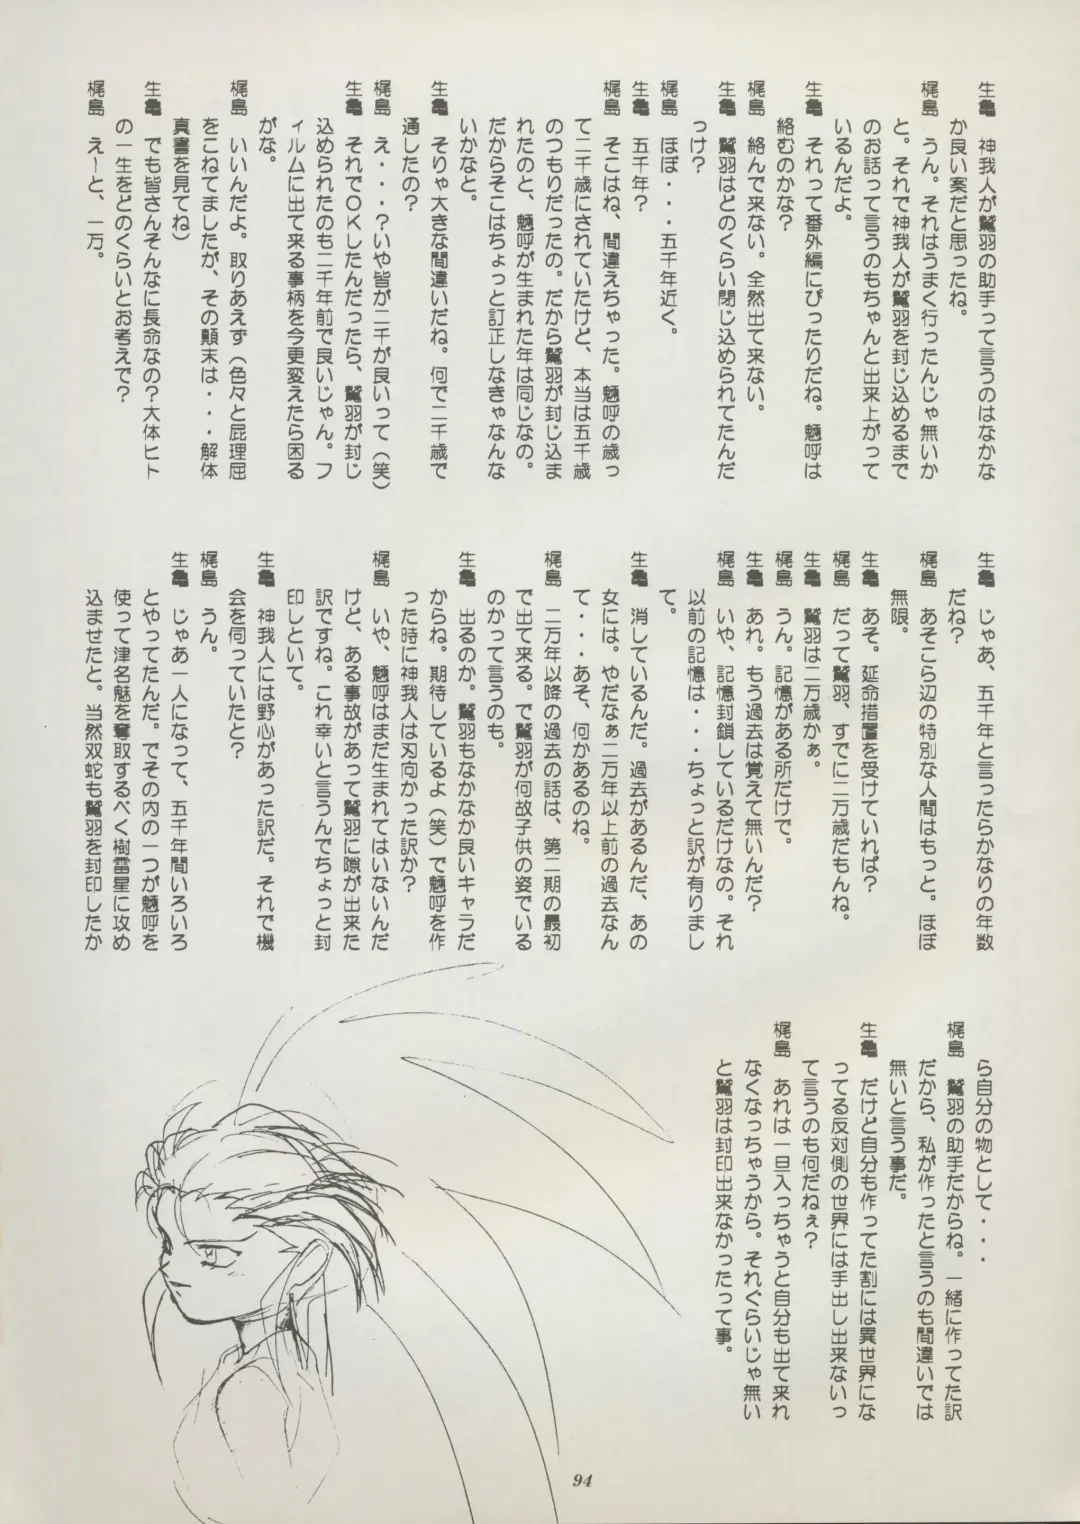 生亀　神我人が鷲羽の助手って言うのはなかな
か良い案だと思ったね。
梶島　うん。それはうまく行ったんじゃ無いか
と。それで神我人が鷲羽を封じ込めるまで
のお話って言うのもちゃんと出来上がって
いるんだよ。
生亀　それって番外編にぴったりだね。魎呼は
絡むのかな？
梶島　絡んで来ない。全然出て来ない。
生亀　鷲羽はどのくらい閉じ込められてたんだ
っけ？
梶島　ほぼ・・・五千年近く。
生亀　五千年？
梶島　そこはね、間違えちゃった。魎呼の歳っ
て二千歳にされていたけど、本当は五千歳
のつもりだったの。だから鷲羽が封じ込ま
れたのと、魎呼が生まれた年は同じなの。
だからそこはちょっと訂正しなきゃなんな
いかなと。
生亀　そりゃ大きな間違いだね。何で二千歳で
通したの？
梶島　え・・・？いや皆が二千が良いって（笑）
生亀　それでＯＫしたんだったら、鷲羽が封じ
込められたのも二千年前で良いじゃん。フ
ィルムに出て来る事柄を今更変えたら困る
がな。
梶島　いいんだよ。取りあえず（色々と屁理屈
をこねてましたが、その顛末は・・・解体
真書を見てね）
生亀　でも皆さんそんなに長命なの？大体ヒト
の一生をどのくらいとお考えで？
梶島　えーと、一万。
生亀　じゃあ、五千年と言ったらかなりの年数
だね？
梶島　あそこら辺の特別な人間はもっと。ほぼ
無限。
生亀　あそ。延命措置を受けていれば？
梶島　だって鷲羽、すでに二万歳だもんね。
生亀　鷲羽は二万歳かぁ。
梶島　うん。記憶がある所だけで。
生亀　あれ。もう過去は覚えて無いんだ？
梶島　いや、記憶封鎖しているだけなの。それ
以前の記憶は・・・ちょっと訳が有りまし
て。
生亀　消しているんだ。過去があるんだ、あの
女には。やだなぁ二万年以上前の過去なん
て・・・あそ、何かあるのね。
梶島　二万年以降の過去の話は、第二期の最初
で出て来る。で鷲羽が何故子供の姿でいる
のかって言うのも。
生亀　出るのか。鷲羽もなかなか良いキャラだ
からね。期待しているよ（笑）で魎呼を作
った時に神我人は刃向かった訳か？
梶島　いや、魎呼はまだ生まれてはいないんだ
けど、ある事故があって鷲羽に隙が出来た
訳ですね。これ幸いと言うんでちょっと封
印しといて。
生亀　神我人には野心があった訳だ。それで機
会を伺っていたと？
梶島　うん。
生亀　じゃあ一人になって、五千年間いろいろ
とやってたんだ。でその内の一つが魎呼を
使って津名魅を奪取するべく樹雷星に攻め
込ませたと。当然双蛇も鷲羽を封印したか
ら自分の物として・・・
梶島　鷲羽の助手だからね。一緒に作ってた訳
だから、私が作ったと言うのも間違いでは
無いと言う事だ。
生亀　だけど自分も作ってた割には異世界にな
ってる反対側の世界には手出し出来ないっ
て言うのも何だねぇ？
梶島　あれは一旦入っちゃうと自分も出て来れ
なくなっちゃうから。それぐらいじゃ無い
と鷲羽は封印出来なかったって事。
94